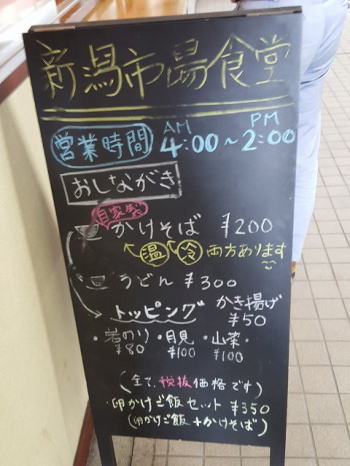 新潟市場食堂
営業時間 AM 4:00～PM 2:00
おしながき
自家製
かけそば ¥200
温 冷 両方あります
うどん ¥300
トッピング かき揚げ ¥50
・岩のり ・月見 ・山菜・
¥80 ¥100 ¥100
(全て、税抜価格です)
・卵かけご飯セット ¥350
(卵かけご飯+かけそば)